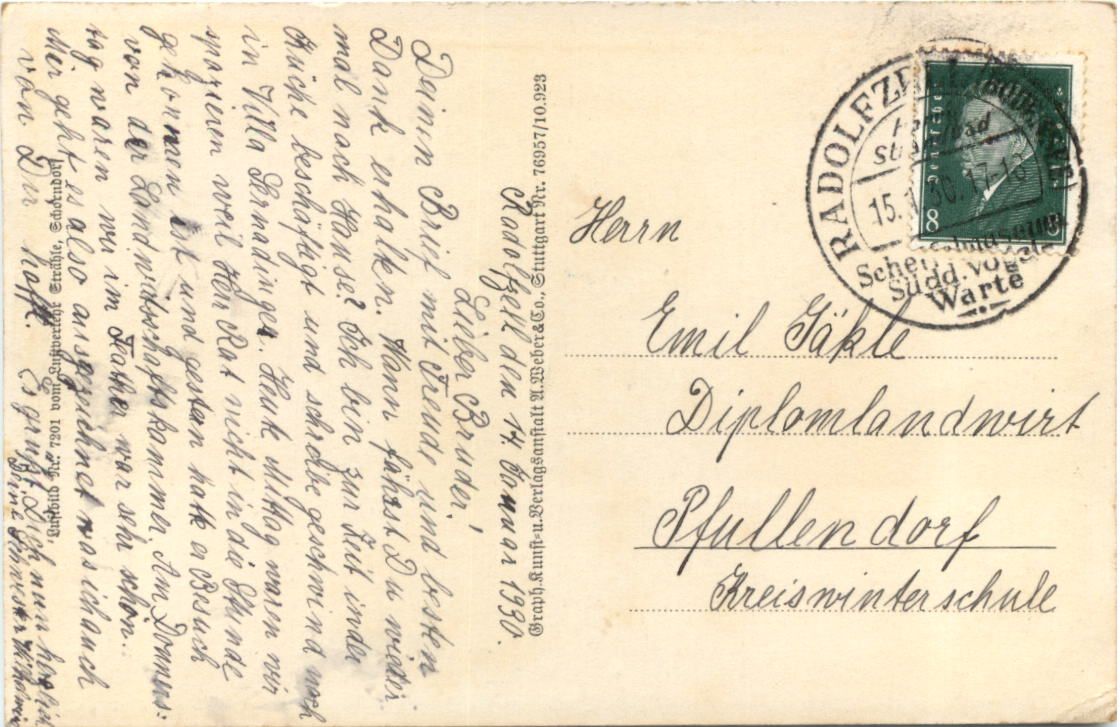 Radolfzell den 14. Januar 1930.
Lieber Bruder!
Deinen Brief mit Freude und besten
Dank erhalten. Wann fährst Du wieder
mal nach Hause? Ich bin zur Zeit in der
Küche beschäftigt und schreibe geschwind noch
in Villa Bernadinger. Heute Mittag waren wir
spazieren weil Herr Rat nicht in die Stunde
gekommen ist und gestern hatte er Besuch
von der Landwirtschaftskammer. Am Donners-
tag waren wir im Theater war sehr schön.
Mir geht es also ausgezeichnet was ich auch
von Dir hoffe. Es grüßt Dich nun herzlich
Deine Schwester
Luftbild Nr. 7201 vom Luftverkehr Strähle, Schorndorf
Graph. Kunst- u. Verlagsanstalt A. Weber & Co., Stuttgart Nr. 76957/10.923
RADOLFZELL (BODENSEE)
15. 30.17-18
Scheffelmuseum
Südd. Vogel
Warte
8
Herrn
Emil Jäkle
Diplomlandwirt
Pfullendorf
Kreiswinterschule